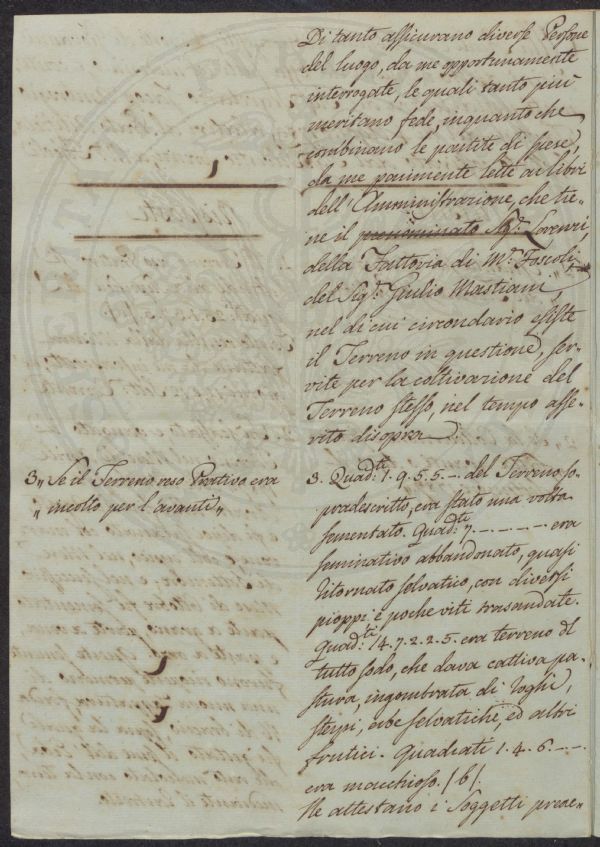 Di tanto assicurano diverse Persone
del luogo, da me opportunamente
interrogate, le quali tanto più
meritano fede, inquanto che
combinano le partite di spese,
da me parimente lette ai libri
dell'Amministrazione, che tie-
ne il prenominato Sig.r Lorenzi,
della Fattoria di M.te Foscoli
del Sig.r Giulio Mastiani,
nel di cui circondario esiste
il Terreno in questione, ser-
vite per la coltivazione del
Terreno stesso, nel tempo asse-
rito disopra
3,, Se il Terreno reso Prativo era
,, incolto per l'avanti,,
3. Quad.ti 1. 9. 5. 5. - del Terreno so-
pradescritto, era stato una volta
sementato. Quad.ti 7. - - - - era
seminativo abbandonato, quasi
ritornato selvatico, con diversi
pioppi e poche viti trasandate.
Quad.ti 14. 7. 2. 2. 5. era terreno del
tutto sodo, che dava cattiva pa-
stura, ingombrata di
sterpi, erbe selvatiche, ed altri
frutici. Quadrati 1. 4. 6. - -
era macchioso. (b).
Ne attestano i Soggetti prece-